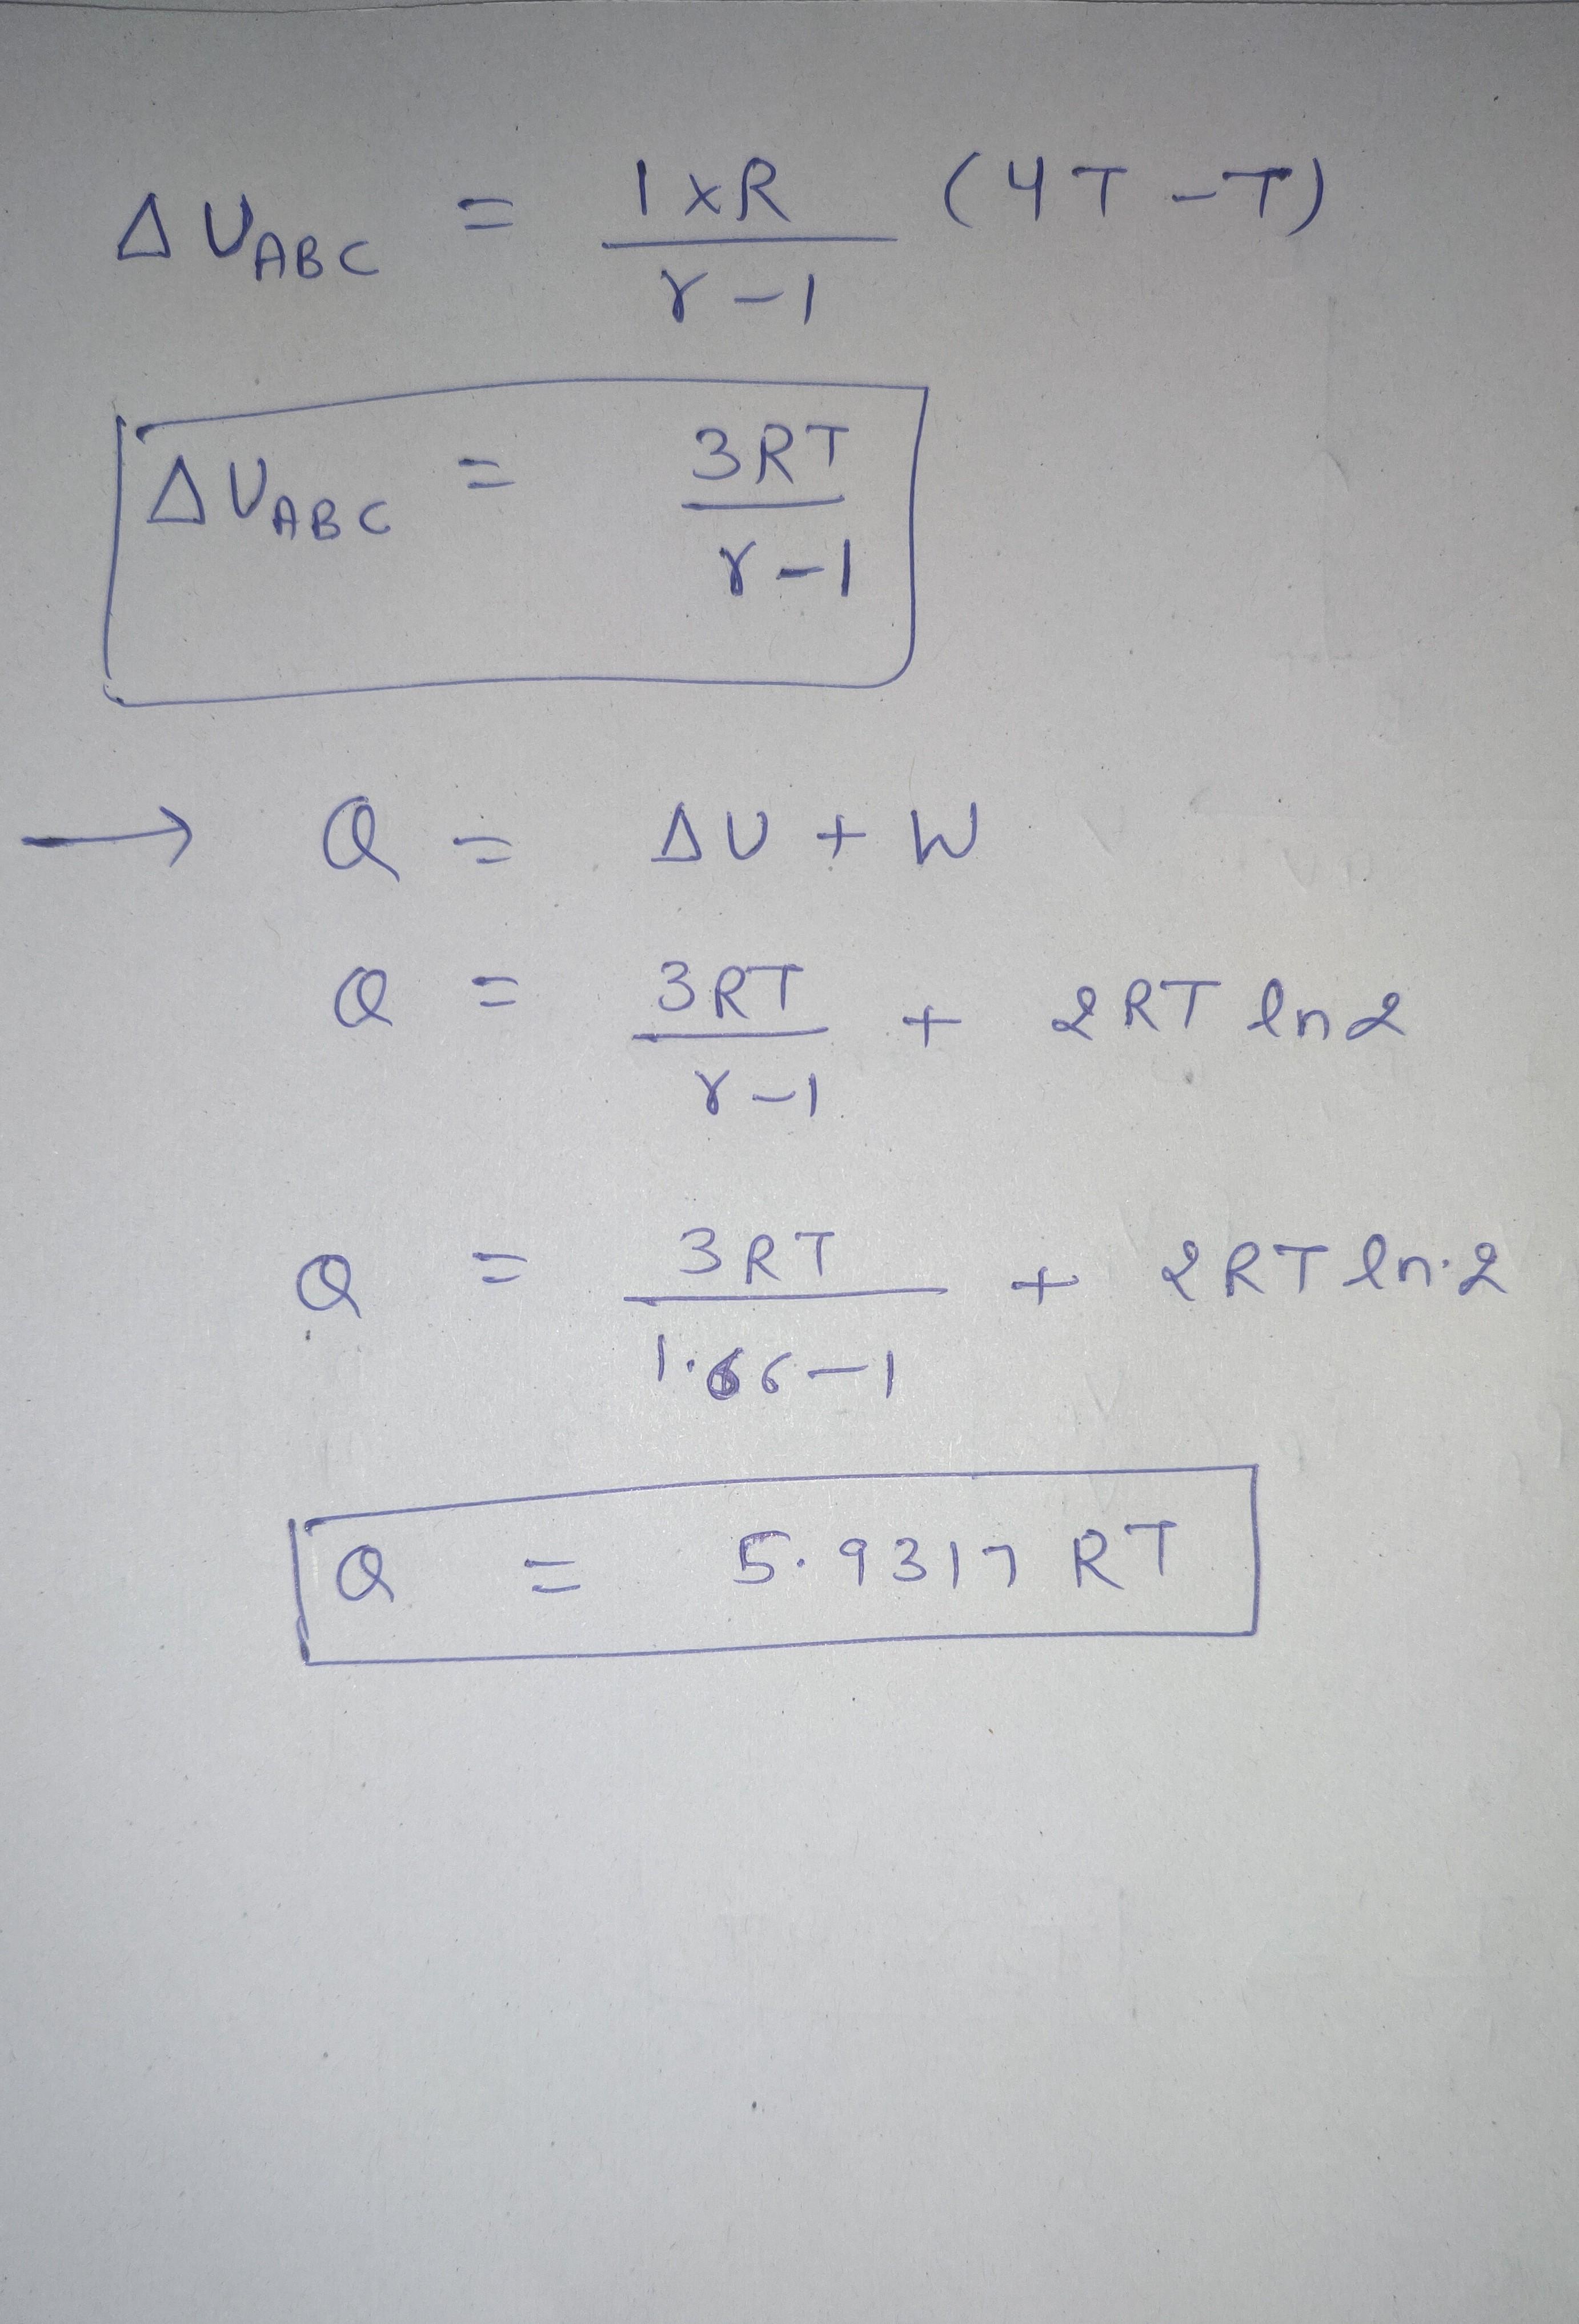 ΔU_ABC = (1×R)/(γ-1) (4T-T)
ΔU_ABC = 3RT/(γ-1)
→ Q = ΔU + W
Q = 3RT/(γ-1) + 2RT ln2
Q = 3RT/(1.66-1) + 2RT ln.2
Q = 5.9317 RT